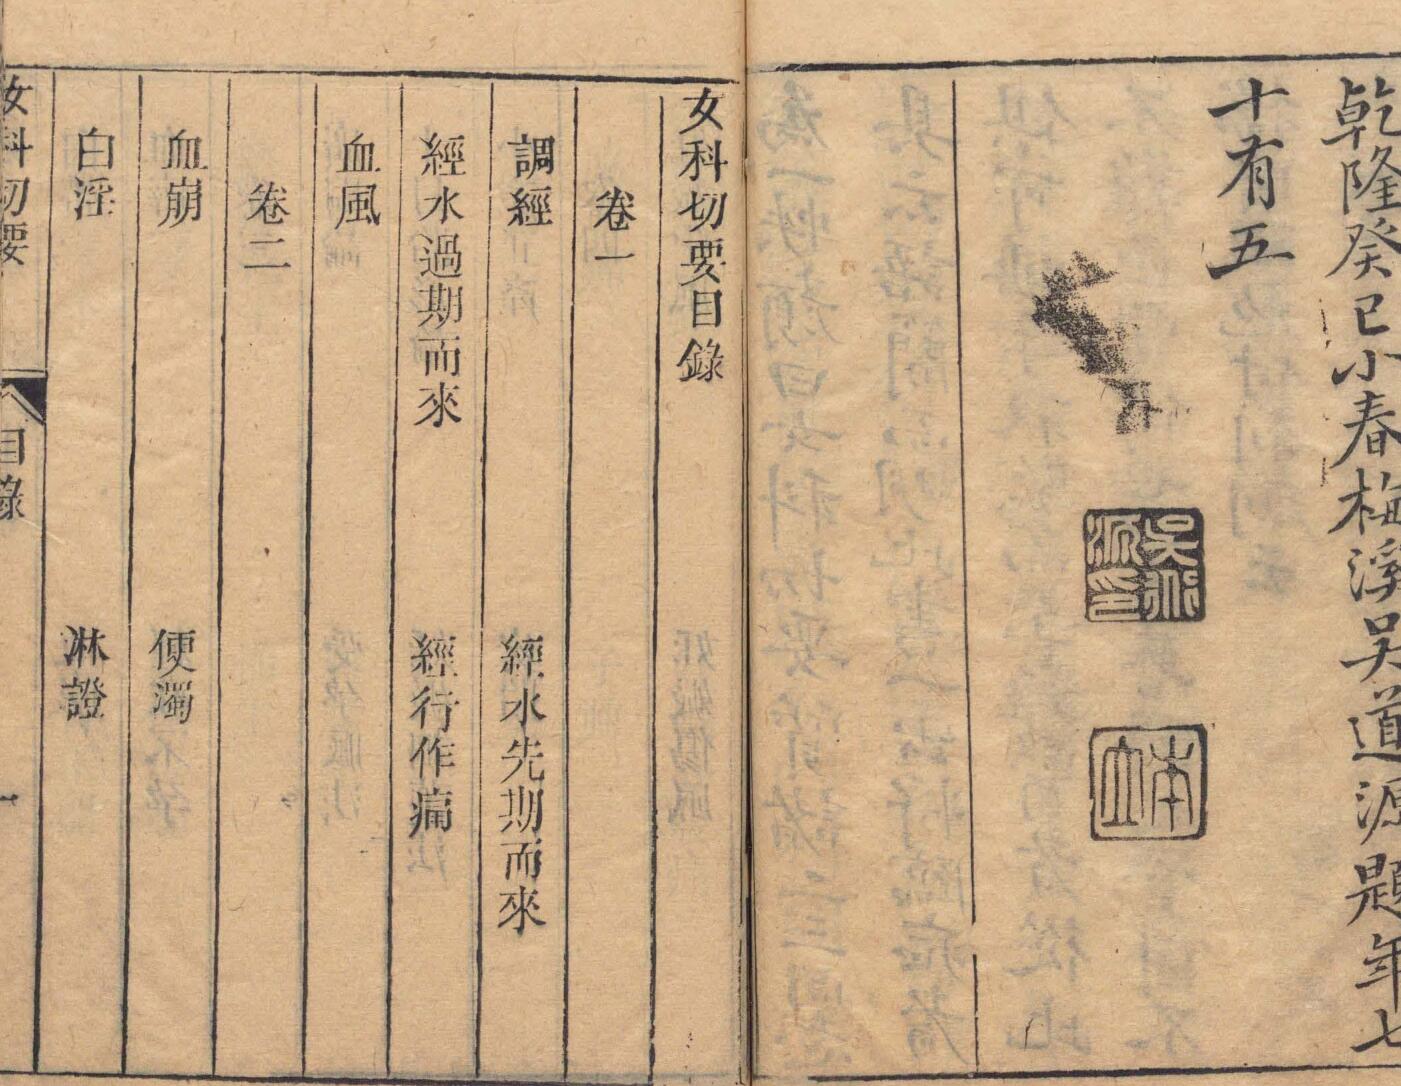 乾隆癸巳小春梅溪吳道源題年七
十有五
女科切要目錄
卷一
調經
經水先期而來
經水過期而來
經行作痛
血風
卷二
血崩
便濁
白淫
淋證
女科切要
目錄
一